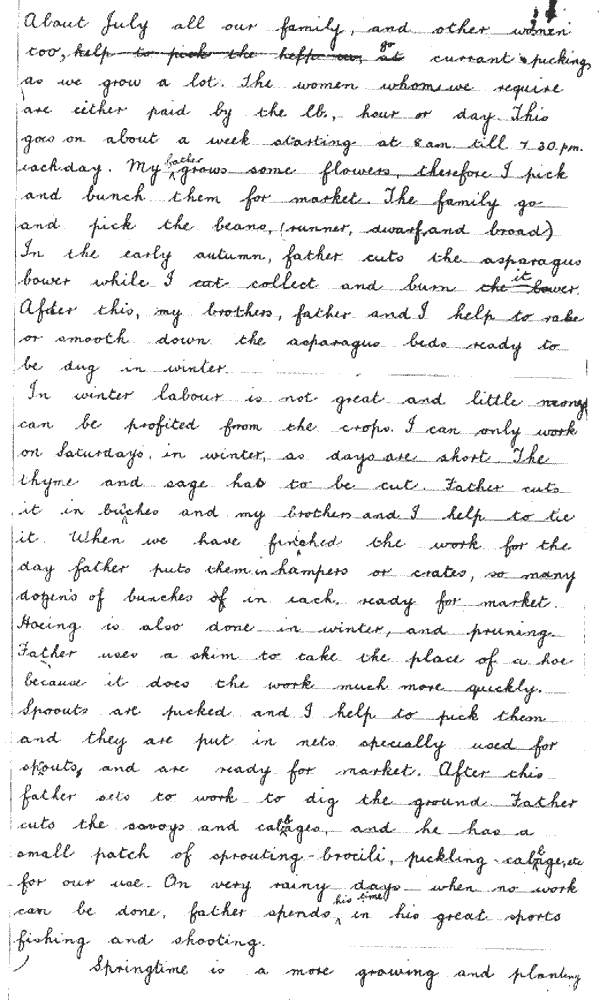 About July all our family, and other women
too, help to pick the help us at go currant pickings
as we grow a lot. The women whom we require
are either paid by the lb., hour or day. This
goes on about a week starting at 8 am. till 7.30. p.m.
each day. My father grows some flowers, therefore I pick
and bunch them for market. The family go
and pick the beans, (runner, dwarf, and broad)
In the early autumn, father cuts the asparagus
bower while I cut collect and burn the bower. it
After this, my brothers, father and I help to rake
or smooth down the asparagus beds ready to
be dug in winter.
In winter labour is not great and little money
can be profited from the crops. I can only work
on Saturdays, in winter, as days are short. The
thyme and sage has to be cut. Father cuts
it in bunches and my brothers and I help to tie
it. When we have finished the work for the
day father puts them in hampers or crates, so many
dozens of bunches of in each, ready for market.
Hoeing is also done in winter, and pruning.
Father uses a skim to take the place of a hoe
because it does the work much more quickly.
Spouts are picked and I help to pick them
and they are put in nets specially used for
sprouts, and are ready for market. After this
father sets to work to dig the ground. Father
cuts the savoys and cabbages, and he has a
small patch of sprouting-brocili, puckling-cabbage, etc
for our use. On very rainy days when no work
can be done, father spends his time in his great sports
fishing and shooting.
Springtime is a more growing and planting